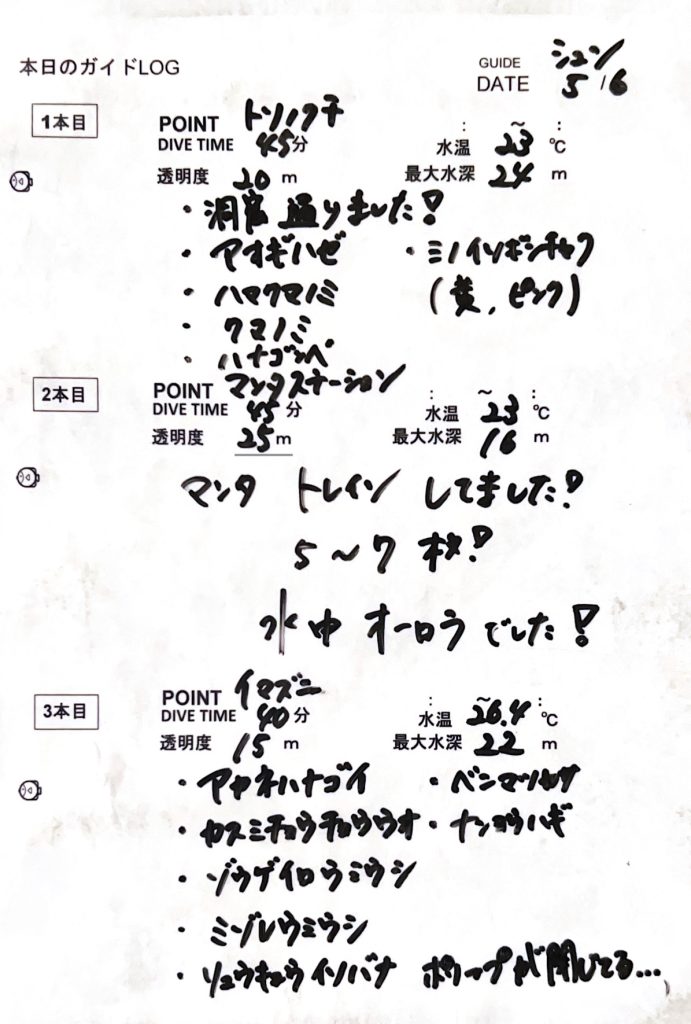 本日のガイドLOG
GUIDE シュン
DATE 5/6
1本目
POINT トリノクチ
DIVE TIME 45分
: ~ :
水温 23 ℃
透明度 20 m
最大水深 24 m
・洞窟 通りました!
・アオギハゼ ・ミノイソギンチャク
・ハマクマノミ (黄、ピンク)
・クマノミ
・ハナゴンベ
2本目
POINT マンタステーション
DIVE TIME 45分
: ~ :
水温 23 ℃
透明度 25 m
最大水深 16 m
マンタ トレイン してました!
5~7枚!
水中 オーロラでした!
3本目
POINT イマズニ
DIVE TIME 40分
: ~ :
水温 26.4 ℃
透明度 15 m
最大水深 22 m
・アヤネハナゴイ ・ベニマツカサ
・カスミチョウチョウウオ ・ナンヨウハギ
・ゾウゲイロウミウシ
・ミゾレウミウシ
・リュウキュウイソバナ ポリップが閉じてる...